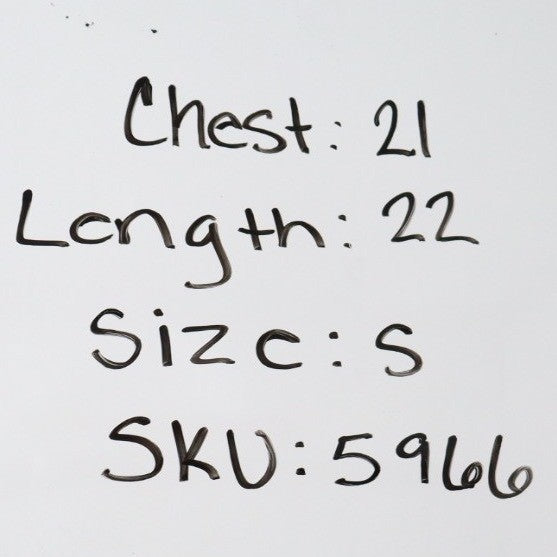 Chest: 21
Length: 22
Size: S
SKU: 5966